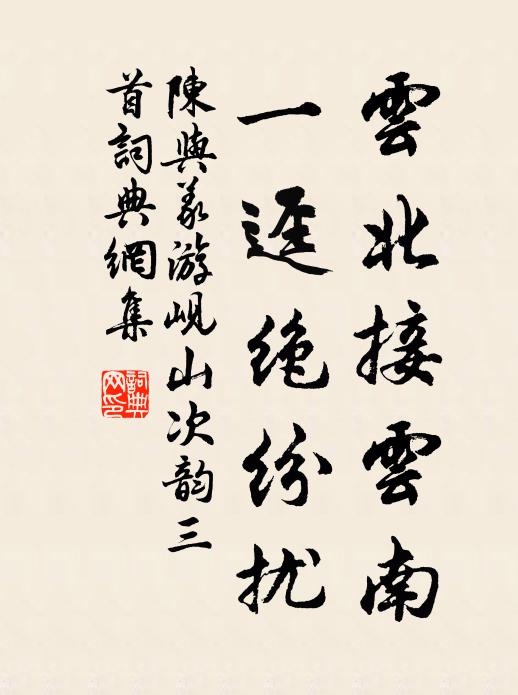 雲北接雲南
一逕绝纷扰
陳與義游峴山次韵三
首詞典網集
詞典網印